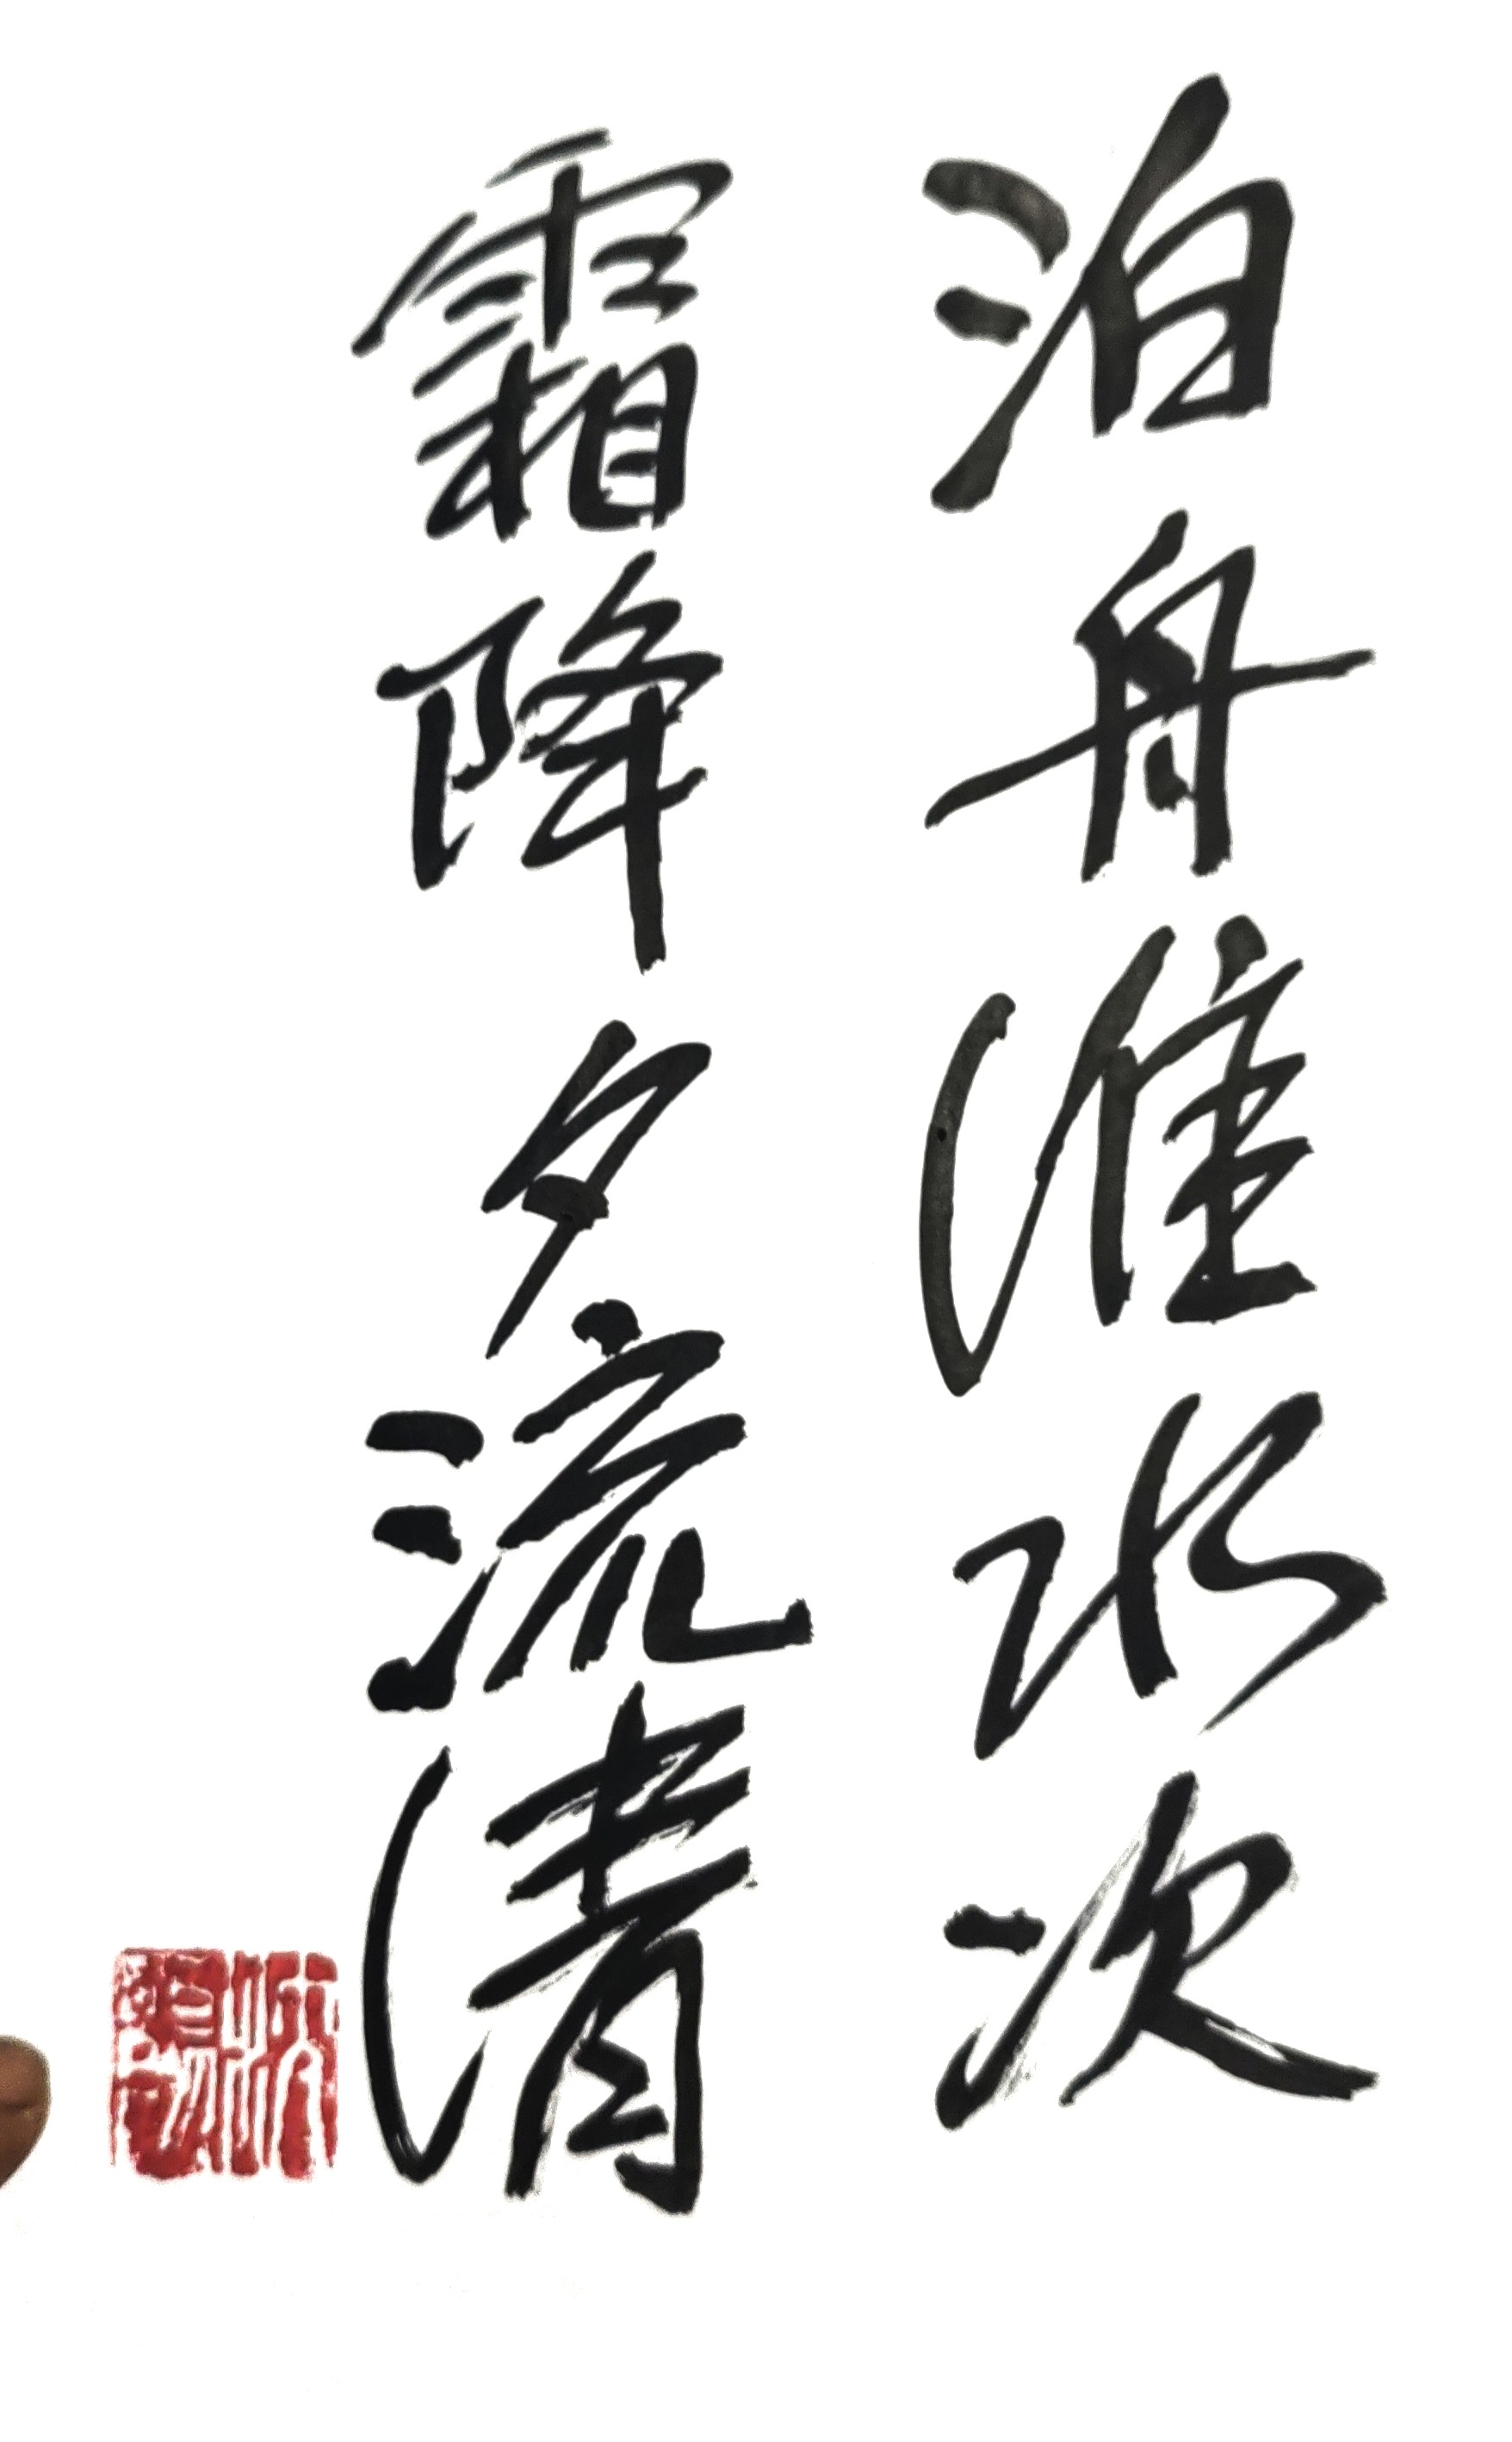 泊舟淮水次
霜降夕流清